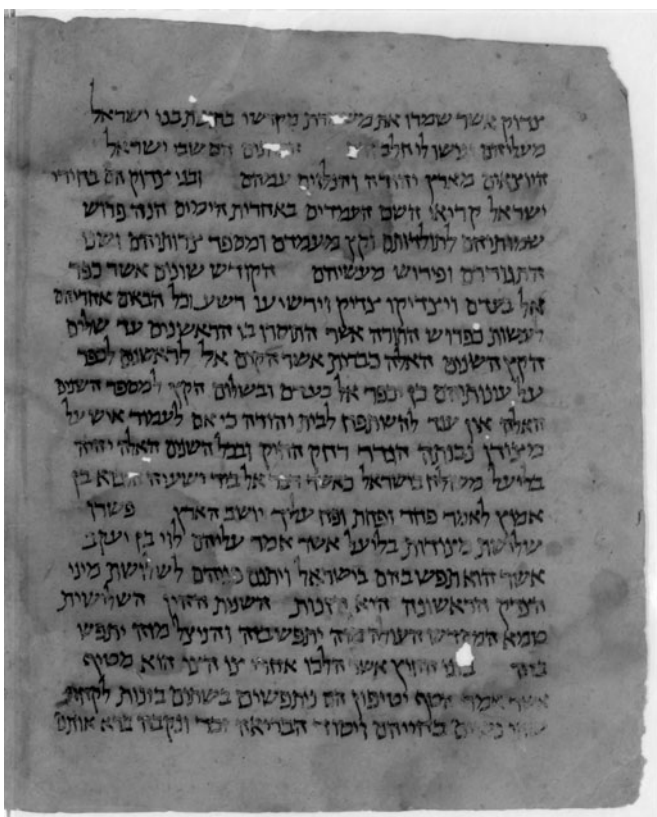 צדוק אשר שמרו את משמרת מקדשו בתעות בני ישראל
מעליהם יגישו לי חלב הם שבי ישראל
היוצאים מארץ יהודה והנלוים עמהם ובני צדוק הם בחירי
ישראל קריאי השם העמדים באחרית הימים הנה פרוש
שמותיהם לתולדותם וקץ מעמדם ומספר צרותיהם ושני
התגוררם ופירוש מעשיהם הקודש שונים אשר כפר
אל בעדם ויצדיקו צדיק וירשיעו רשע וכל הבאים אחריהם
לעשות כפרוש התורה אשר התוסרו בו הראשנים עד שלים
הקץ השנים האלה כברית אשר הקים אל לראשנים לכפר
על עונותיהם כן יכפר אל בעדם ובשלום הקץ למספר השנים
האלה אין עוד להשתפח לבית יהודה כי אם לעמוד איש על
מצודו נבנתה הגדר רחק החוק ובכל השנים האלה יהיה
בליעל משולח בישראל כאשר דבר אל ביד ישעיה הנביא בן
אמוץ לאמר פחד ופחת ופח עליך יושב הארץ פשרו
שלושת מצודות בליעל אשר אמר עליהם לוי בן יעקב
אשר הוא תפש בהם בישראל ויתנם פניהם לשלושת מיני
הצדק הראשונה היא הזנות השנית ההין השלישית
טמא המקדש העולה מזה יתפש בזה והניצל מזה יתפש
בזה בוני החוץ אשר הלכו אחרי צו הצו הוא מטיף
אשר אמר הטף יטיפון הם ניתפשים בשתים בזנות לקחת
שתי נשים בחייהם ויסוד הבריאה זכר ונקבה ברא אותם